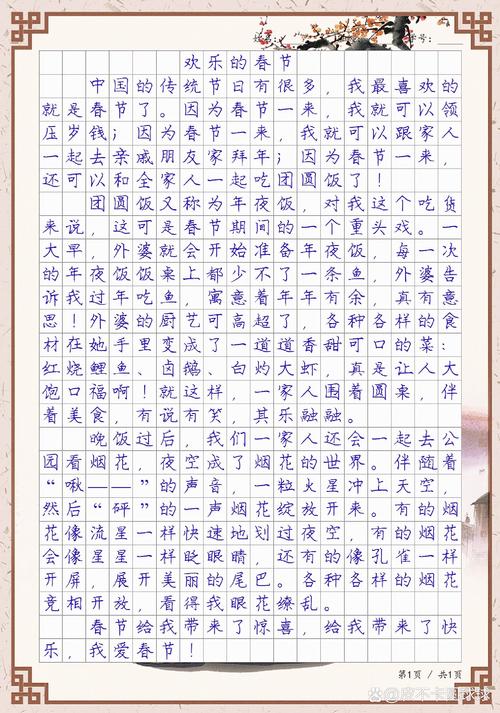 学号：
欢乐的春节
中国的传统节日有很多，我最喜欢的
就是春节了。因为春节一来，我就可以领
压岁钱；因为春节一来，我就可以跟家人
一起去亲戚朋友家拜年；因为春节一来，
还可以和全家人一起吃团圆饭了！
团圆饭又称为年夜饭，对我这个吃货
来说，这可是春节期间的一个重头戏。一
大早，外婆就会开始准备年夜饭，每一次
的年夜饭饭桌上都少不了一条鱼，外婆告
诉我过年吃鱼，寓意着年年有余，真有意
思！外婆的厨艺可高超了，各种各样的食
材在她手里变成了一道道香甜可口的菜：
红烧鲤鱼、卤鹅、白灼大虾，真是让人大
饱口福啊！就这样，一家人围着圆桌，伴
着美食，有说有笑，其乐融融。
晚饭过后，我们一家人还会一起去公
园看烟花，夜空成了烟花的世界。伴随着
“啾——”的声音，一粒火星冲上天空，
然后“砰”的一声烟花绽放开来。有的烟
花像流星一样快速地划过夜空，有的烟花
会像星星一样眨眼睛，还有的像孔雀一样
开屏，展开美丽的尾巴。各种各样的烟花
竞相开放，看得我眼花缭乱。
春节给我带来了惊喜，给我带来了快
乐，我爱春节！
第1页 / 共1页